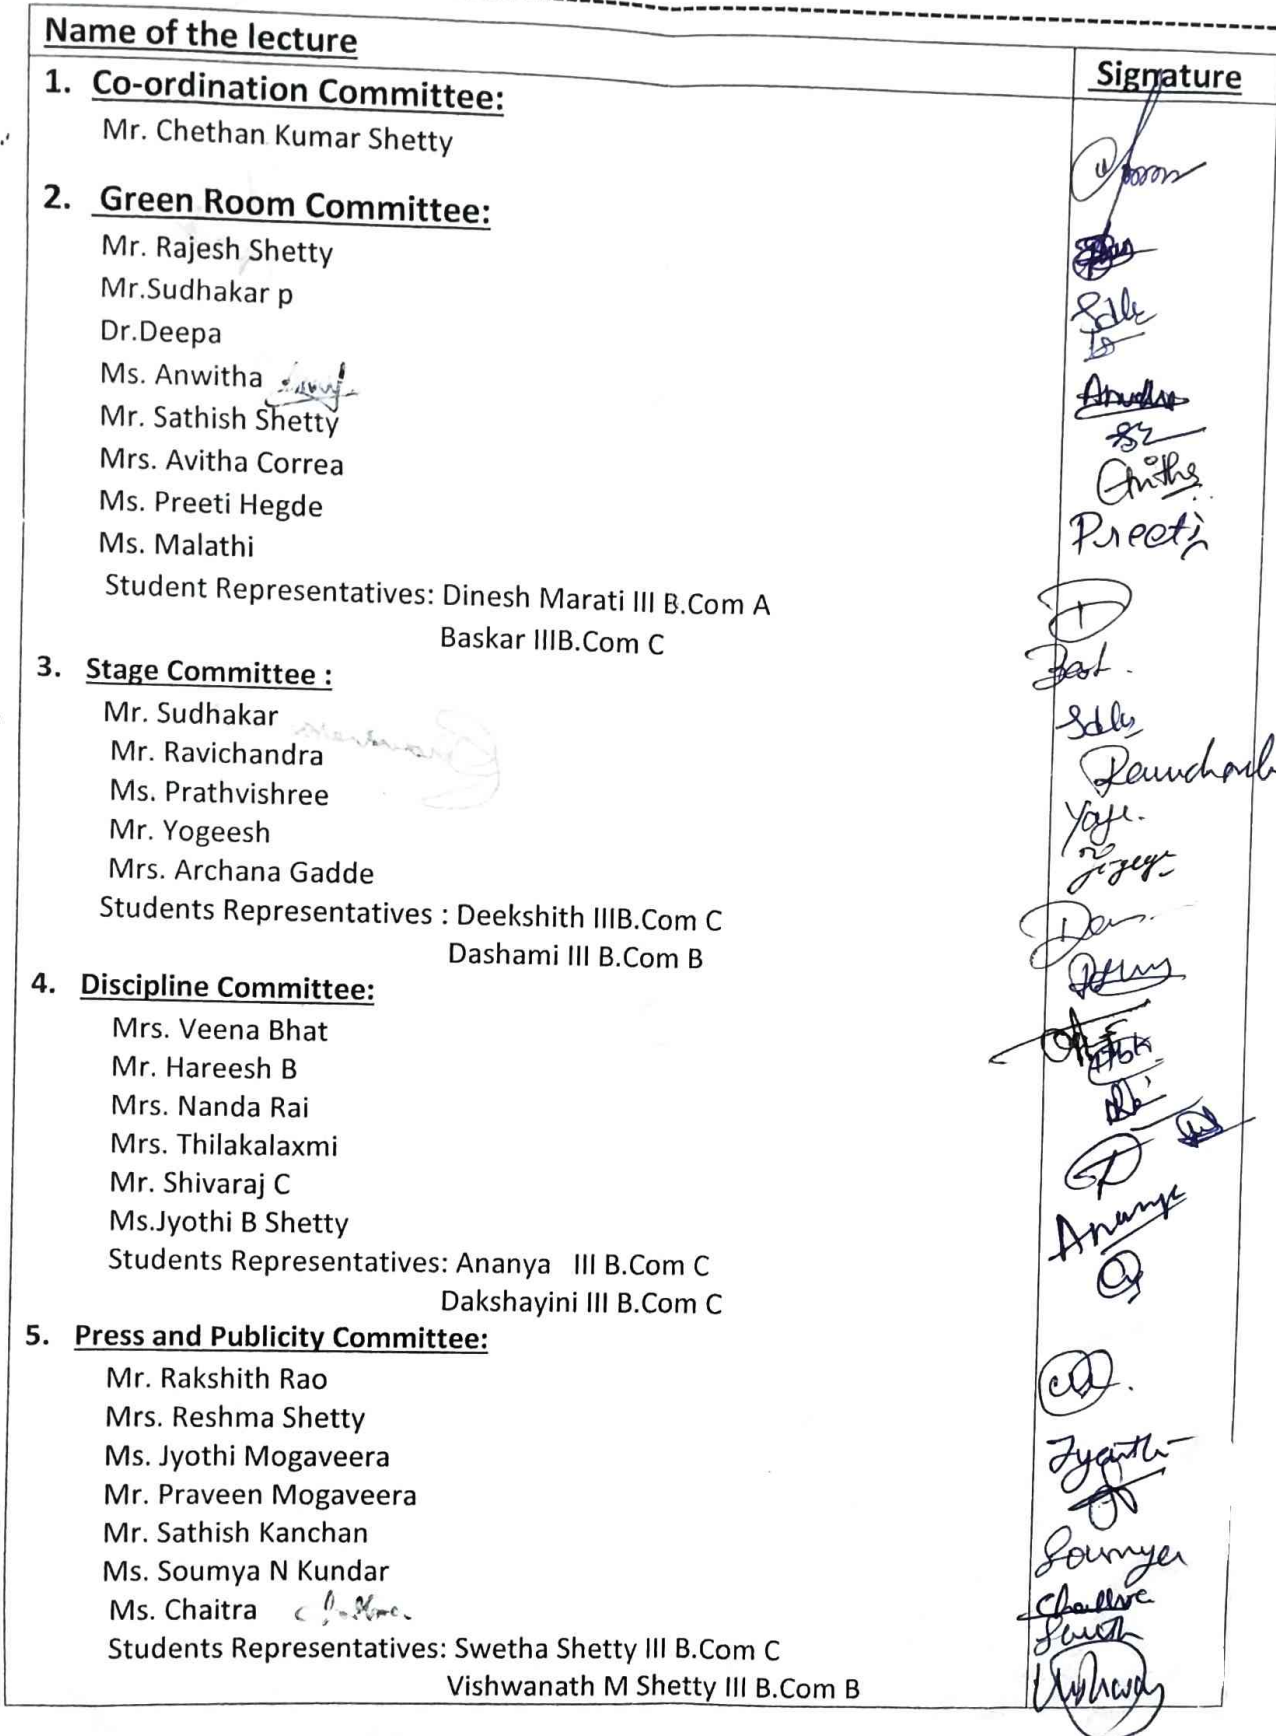 Name of the lecture
Signature
1. Co-ordination Committee:
Mr. Chethan Kumar Shetty
2. Green Room Committee:
Mr. Rajesh Shetty
Mr.Sudhakar p
Dr.Deepa
Ms. Anwitha
Mr. Sathish Shetty
Mrs. Avitha Correa
Ms. Preeti Hegde
Preeti
Ms. Malathi
Student Representatives: Dinesh Marati III B.Com A
Baskar IIIB.Com C
3. Stage Committee :
Mr. Sudhakar
Mr. Ravichandra
Ms. Prathvishree
Mr. Yogeesh
Mrs. Archana Gadde
Students Representatives : Deekshith IIIB.Com C
Dashami III B.Com B
4. Discipline Committee:
Mrs. Veena Bhat
Mr. Hareesh B
Mrs. Nanda Rai
Mrs. Thilakalaxmi
Mr. Shivaraj C
Ms.Jyothi B Shetty
Students Representatives: Ananya III B.Com C
Ananya
Dakshayini III B.Com C
5. Press and Publicity Committee:
Mr. Rakshith Rao
Mrs. Reshma Shetty
Ms. Jyothi Mogaveera
Mr. Praveen Mogaveera
Mr. Sathish Kanchan
Ms. Soumya N Kundar
Soumya
Ms. Chaitra
Students Representatives: Swetha Shetty III B.Com C
Vishwanath M Shetty III B.Com B